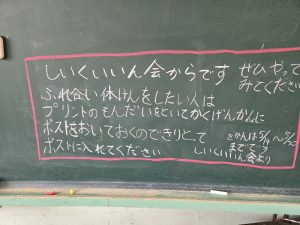 しいくいいん会からです
ぜひやって
みてください
ふれ合い体けんをしたい人は
プリントのもんだいをといてかくげんかんに
ポストをおいておくのできりとって
ポストに入れてください
きかんは5/9〜5/12
までです
しいくいいん会より